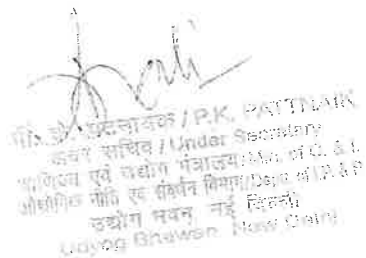 पी. के. पटनायक / P.K. PATTNAIK
अवर सचिव / Under Secretary
वाणिज्य एवं उद्योग मंत्रालय / Min. of C. & I.
औद्योगिक नीति एवं संवर्धन विभाग/Dept. of I.P. & P
उद्योग भवन, नई दिल्ली
Udyog Bhawan, New Delhi